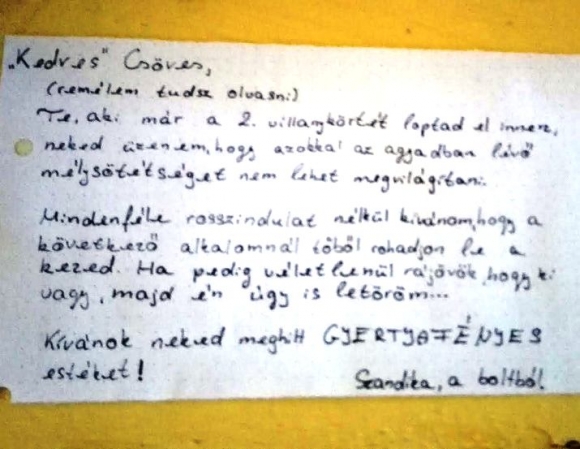 „Kedves" Csöves,
(remélem tudsz olvasni)
Te, aki már a 2. villanykörtét loptad el innen,
neked üzenem, hogy azokkal az agyadban lévő
mélysötétséget nem lehet megvilágítani.
Mindenféle rosszindulat nélkül kívánom, hogy a
következő alkalomnál tőből rohadjon le a
kezed. Ha pedig véletlenül rájövök, hogy ki
vagy, majd én úgy is letöröm...
Kívánok neked meghitt GYERTYAFÉNYES
estéket!
Szandika, a boltból